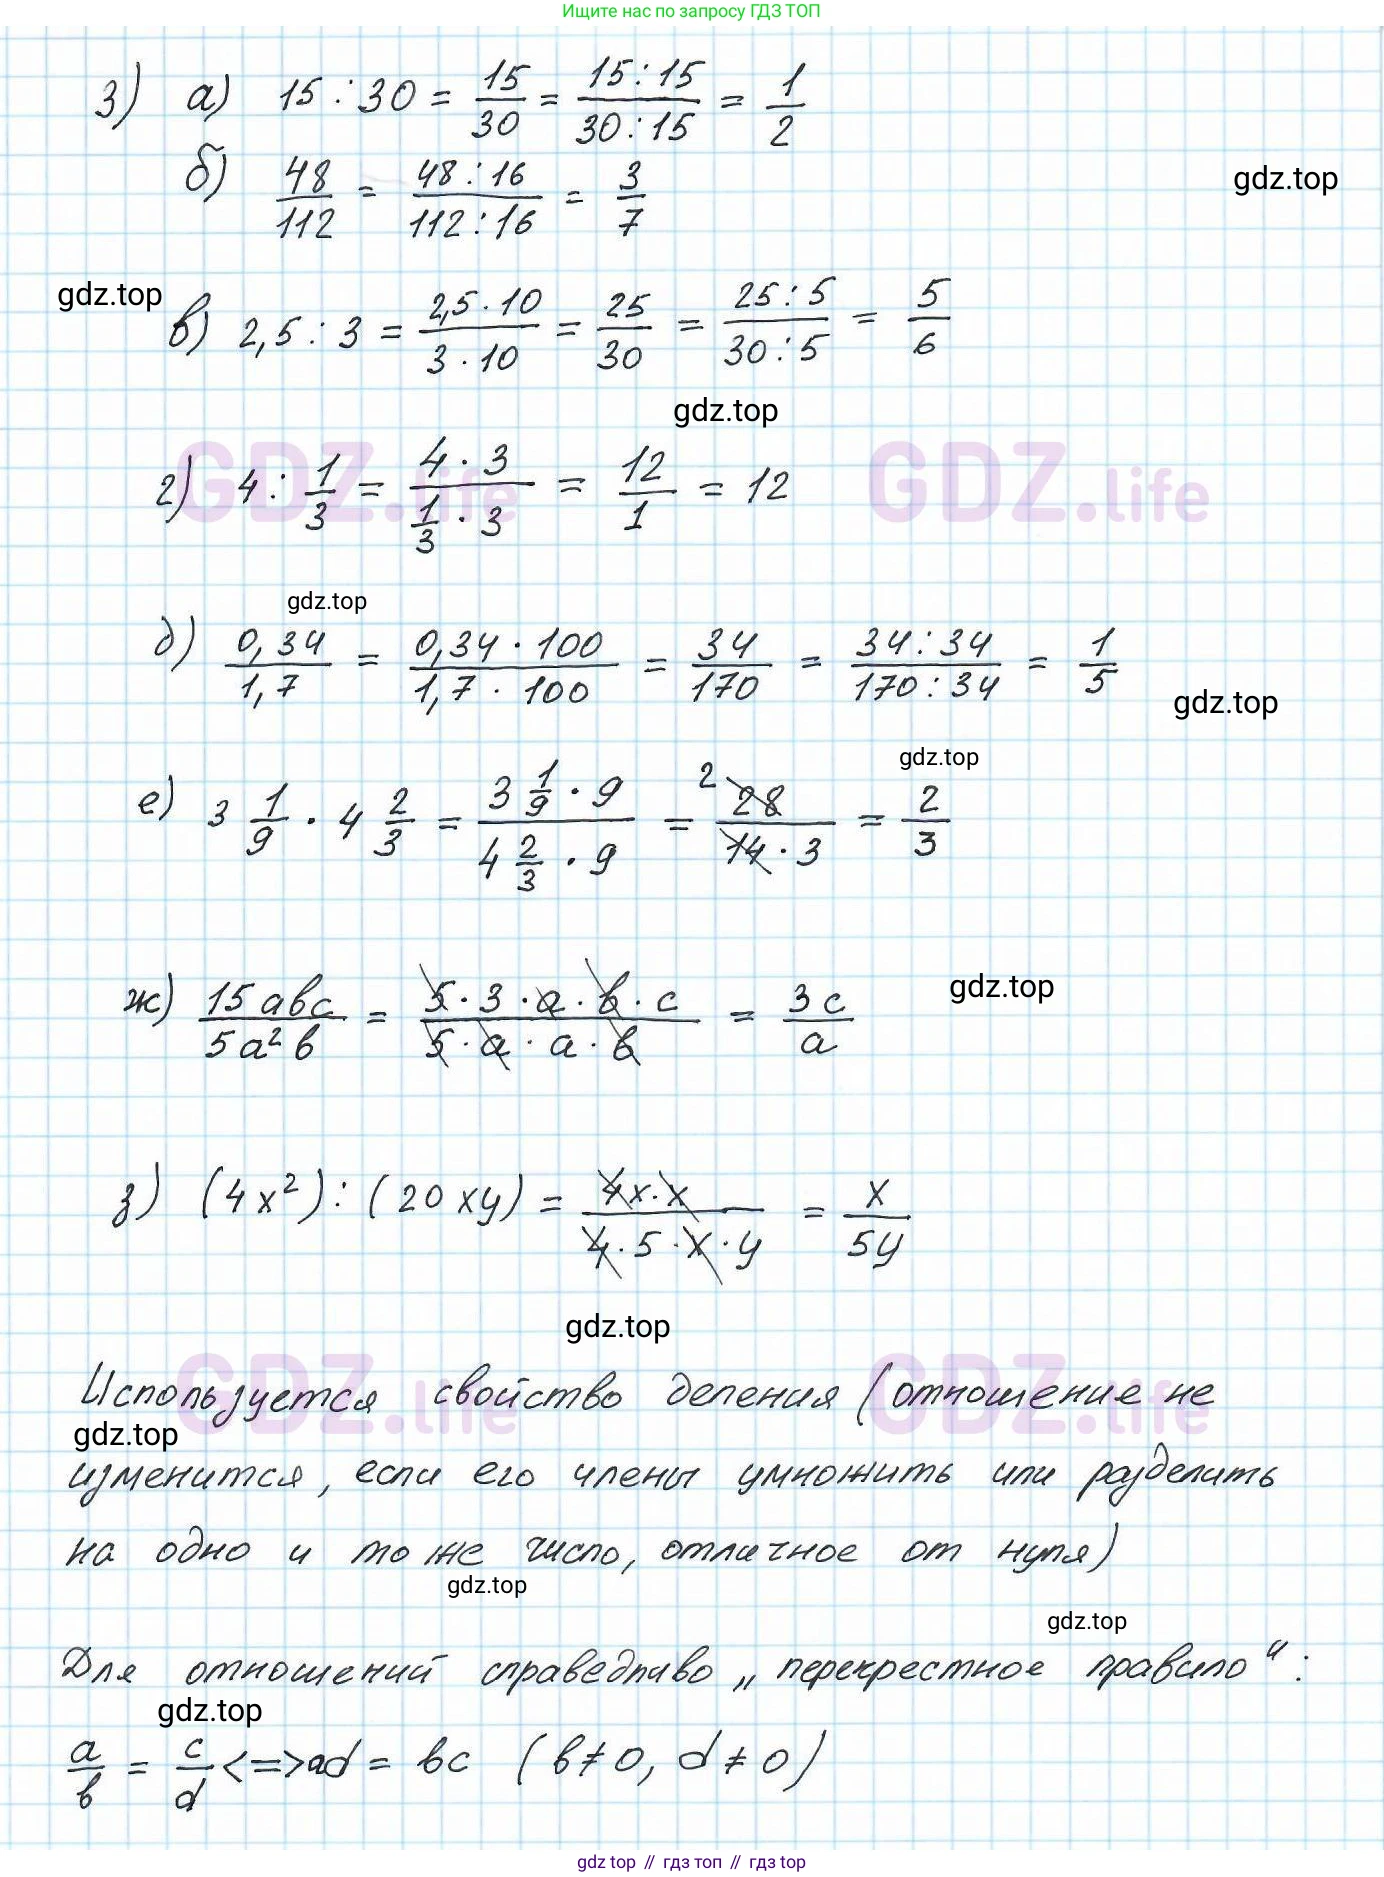 Ищите нас по запросу ГДЗ ТОП
3) а) 15 : 30 = 15/30 = 15:15/30:15 = 1/2
б) 48/112 = 48:16/112:16 = 3/7
gdz.top
gdz.top
в) 2,5 : 3 = 2,5·10/3·10 = 25/30 = 25:5/30:5 = 5/6
gdz.top
GDZ.life GDZ.life
г) 4 : 1/3 = 4·3/(1/3·3) = 12/1 = 12
gdz.top
д) 0,34/1,7 = 0,34·100/1,7·100 = 34/170 = 34:34/170:34 = 1/5
gdz.top
gdz.top
е) 3 1/9 · 4 2/3 = (3 1/9 · 9)/(4 2/3 · 9) = 2 28/14·3 = 2/3
gdz.top
ж) 15abc/5a²b = 5·3·a·b·c/5·a·a·b = 3c/a
з) (4x²) : (20xy) = 4x·x/4·5·x·y = x/5y
gdz.top
GDZ.life GDZ.life
Используется свойство деления (отношение не
gdz.top
изменится, если его члены умножить или разделить
на одно и то же число, отличное от нуля)
gdz.top
gdz.top
Для отношений справедливо „перекрестное правило“:
gdz.top
a/b = c/d <=> ad = bc (b≠0, d≠0)
gdz top // гдз топ // гдз top